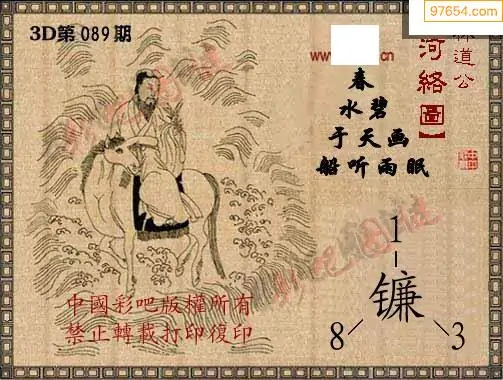 97654.com
3D第 089 期
www.
道公
河絡圖】
春
水碧
于天画
船听雨眠
1
镰
8
3
中國彩吧版權所有
禁止轉載打印復印